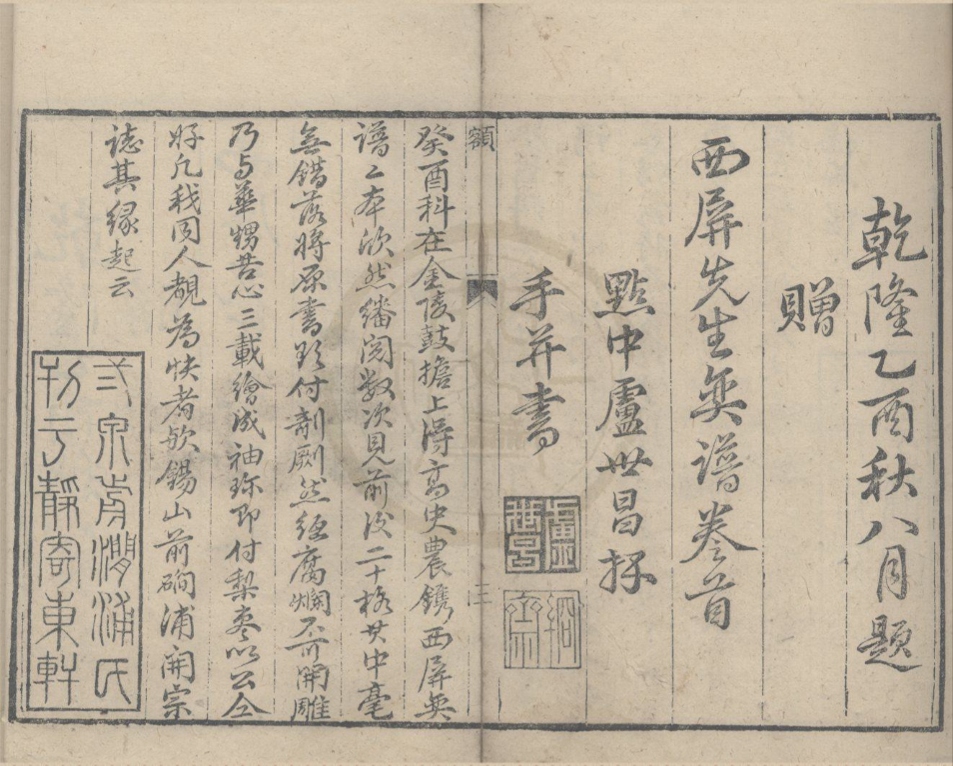 乾隆乙酉秋八月題
贈
西屏先生奕譜卷首
黔中盧世昌拜
手并書
盧
世昌
額
三
癸酉科在金陵鼓擔上得高史農鐫西屏奕
譜二本欣然繙閱数次見前後二十格其中毫
無錯落將原書欲付剞劂然經腐爛不可開雕
乃与華甥苦心三載繪成袖珍即付梨棗以公仝
好凡我同人覩為快者歟錫山前磵浦開宗
誌其緣起云
弍泉前澗浦氏
刊于靜寄東軒